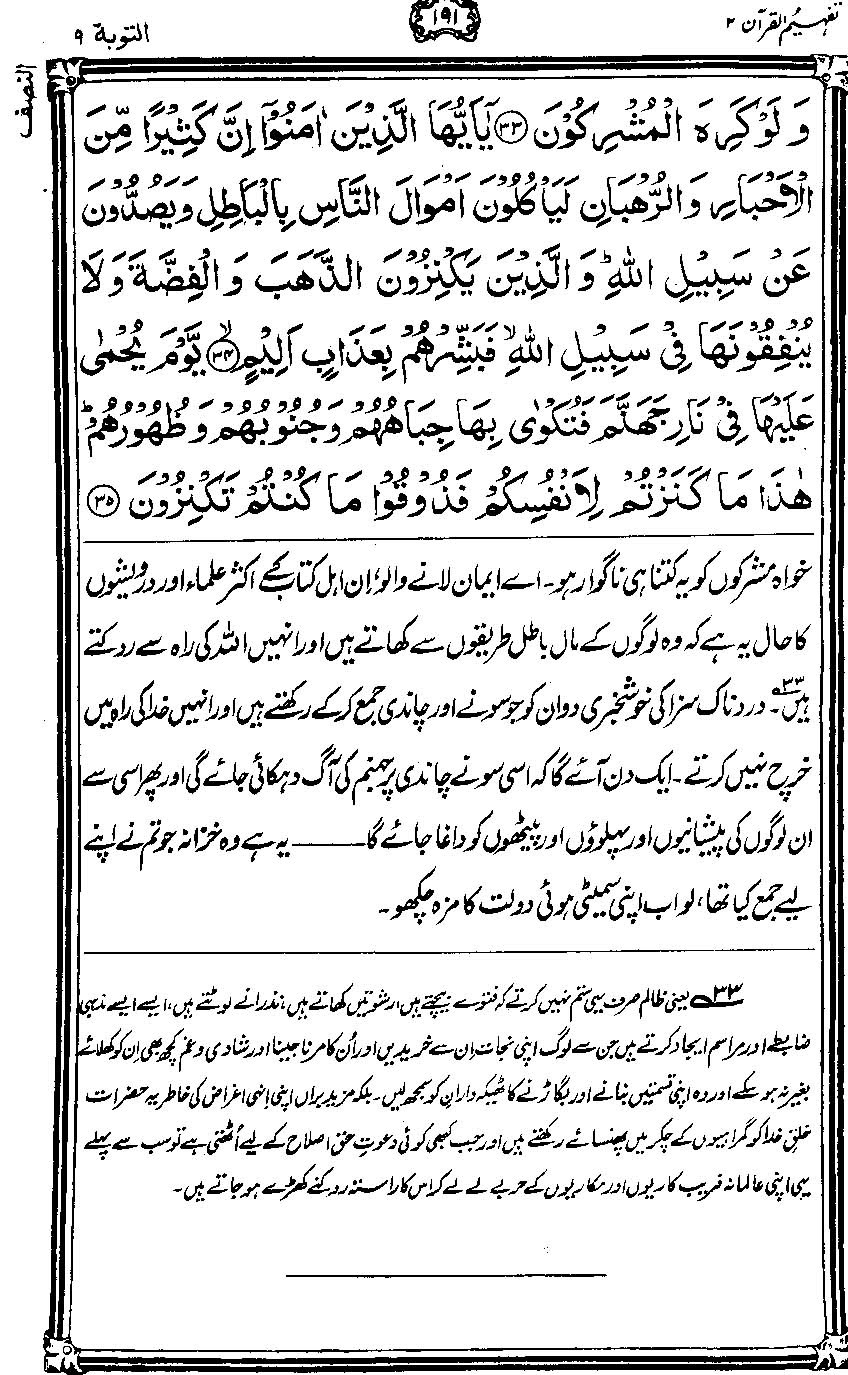 تفہیم القرآن ۲
۱۹۱
التوبۃ ۹
النصف
وَلَوْ كَرِهَ الْمُشْرِكُوْنَ ﴿۳۳﴾ يٰۤاَيُّهَا الَّذِيْنَ اٰمَنُوْۤا اِنَّ كَثِيْرًا مِّنَ
الْاَحْبَارِ وَالرُّهْبَانِ لَيَاْكُلُوْنَ اَمْوَالَ النَّاسِ بِالْبَاطِلِ وَيَصُدُّوْنَ
عَنْ سَبِيْلِ اللّٰهِ ؕ وَالَّذِيْنَ يَكْنِزُوْنَ الذَّهَبَ وَالْفِضَّةَ وَلَا
يُنْفِقُوْنَهَا فِيْ سَبِيْلِ اللّٰهِ ۙ فَبَشِّرْهُمْ بِعَذَابٍ اَلِيْمٍ ﴿۳۴﴾ يَّوْمَ يُحْمٰى
عَلَيْهَا فِيْ نَارِ جَهَنَّمَ فَتُكْوٰى بِهَا جِبَاهُهُمْ وَجُنُوْبُهُمْ وَظُهُوْرُهُمْ ؕ
هٰذَا مَا كَنَزْتُمْ لِاَنْفُسِكُمْ فَذُوْقُوْا مَا كُنْتُمْ تَكْنِزُوْنَ ﴿۳۵﴾
خواہ مشرکوں کو یہ کتنا ہی ناگوار ہو۔ اے ایمان لانے والو، اِن اہلِ کتاب کے اکثر علماء اور درویشوں
کا حال یہ ہے کہ وہ لوگوں کے مال باطل طریقوں سے کھاتے ہیں اور انہیں اللہ کی راہ سے روکتے
ہیں۳۳۔ دردناک سزا کی خوشخبری دو ان کو جو سونے اور چاندی جمع کر کے رکھتے ہیں اور انہیں خدا کی راہ میں
خرچ نہیں کرتے۔ ایک دن آئے گا کہ اسی سونے چاندی پر جہنم کی آگ دہکائی جائے گی اور پھر اسی سے
ان لوگوں کی پیشانیوں اور پہلوؤں اور پیٹھوں کو داغا جائے گا ——— یہ ہے وہ خزانہ جو تم نے اپنے
لیے جمع کیا تھا، لو اب اپنی سمیٹی ہوئی دولت کا مزہ چکھو۔
۳۳ یعنی ظالم صرف یہی ستم نہیں کرتے کہ فتوے بیچتے ہیں، رشوتیں کھاتے ہیں، نذرانے لوٹتے ہیں، ایسے ایسے مذہبی
ضابطے اور مراسم ایجاد کرتے ہیں جن سے لوگ اپنی نجات اِن سے خریدیں اور اُن کا مرنا جینا اور شادی و غم کچھ بھی اِن کو کھلائے
بغیر نہ ہو سکے اور وہ اپنی قسمتیں بنانے اور بگاڑنے کا ٹھیکہ دار اِن کو سمجھ لیں۔ بلکہ مزید براں اپنی اِنہی اغراض کی خاطر یہ حضرات
خلقِ خدا کو گمراہیوں کے چکر میں پھنسائے رکھتے ہیں اور جب کبھی کوئی دعوتِ حق اصلاح کے لیے اُٹھتی ہے تو سب سے پہلے
یہی اپنی عالمانہ فریب کاریوں اور مکاریوں کے حربے لے لے کر اس کا راستہ روکنے کھڑے ہو جاتے ہیں۔